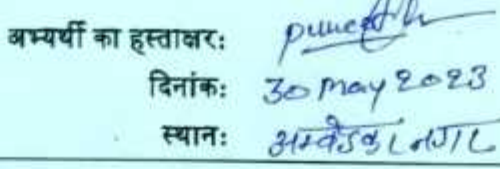 अभ्यर्थी का हस्ताक्षर: puneeth
दिनांक: 30 May 2023
स्थान: अम्बेडकर नगर